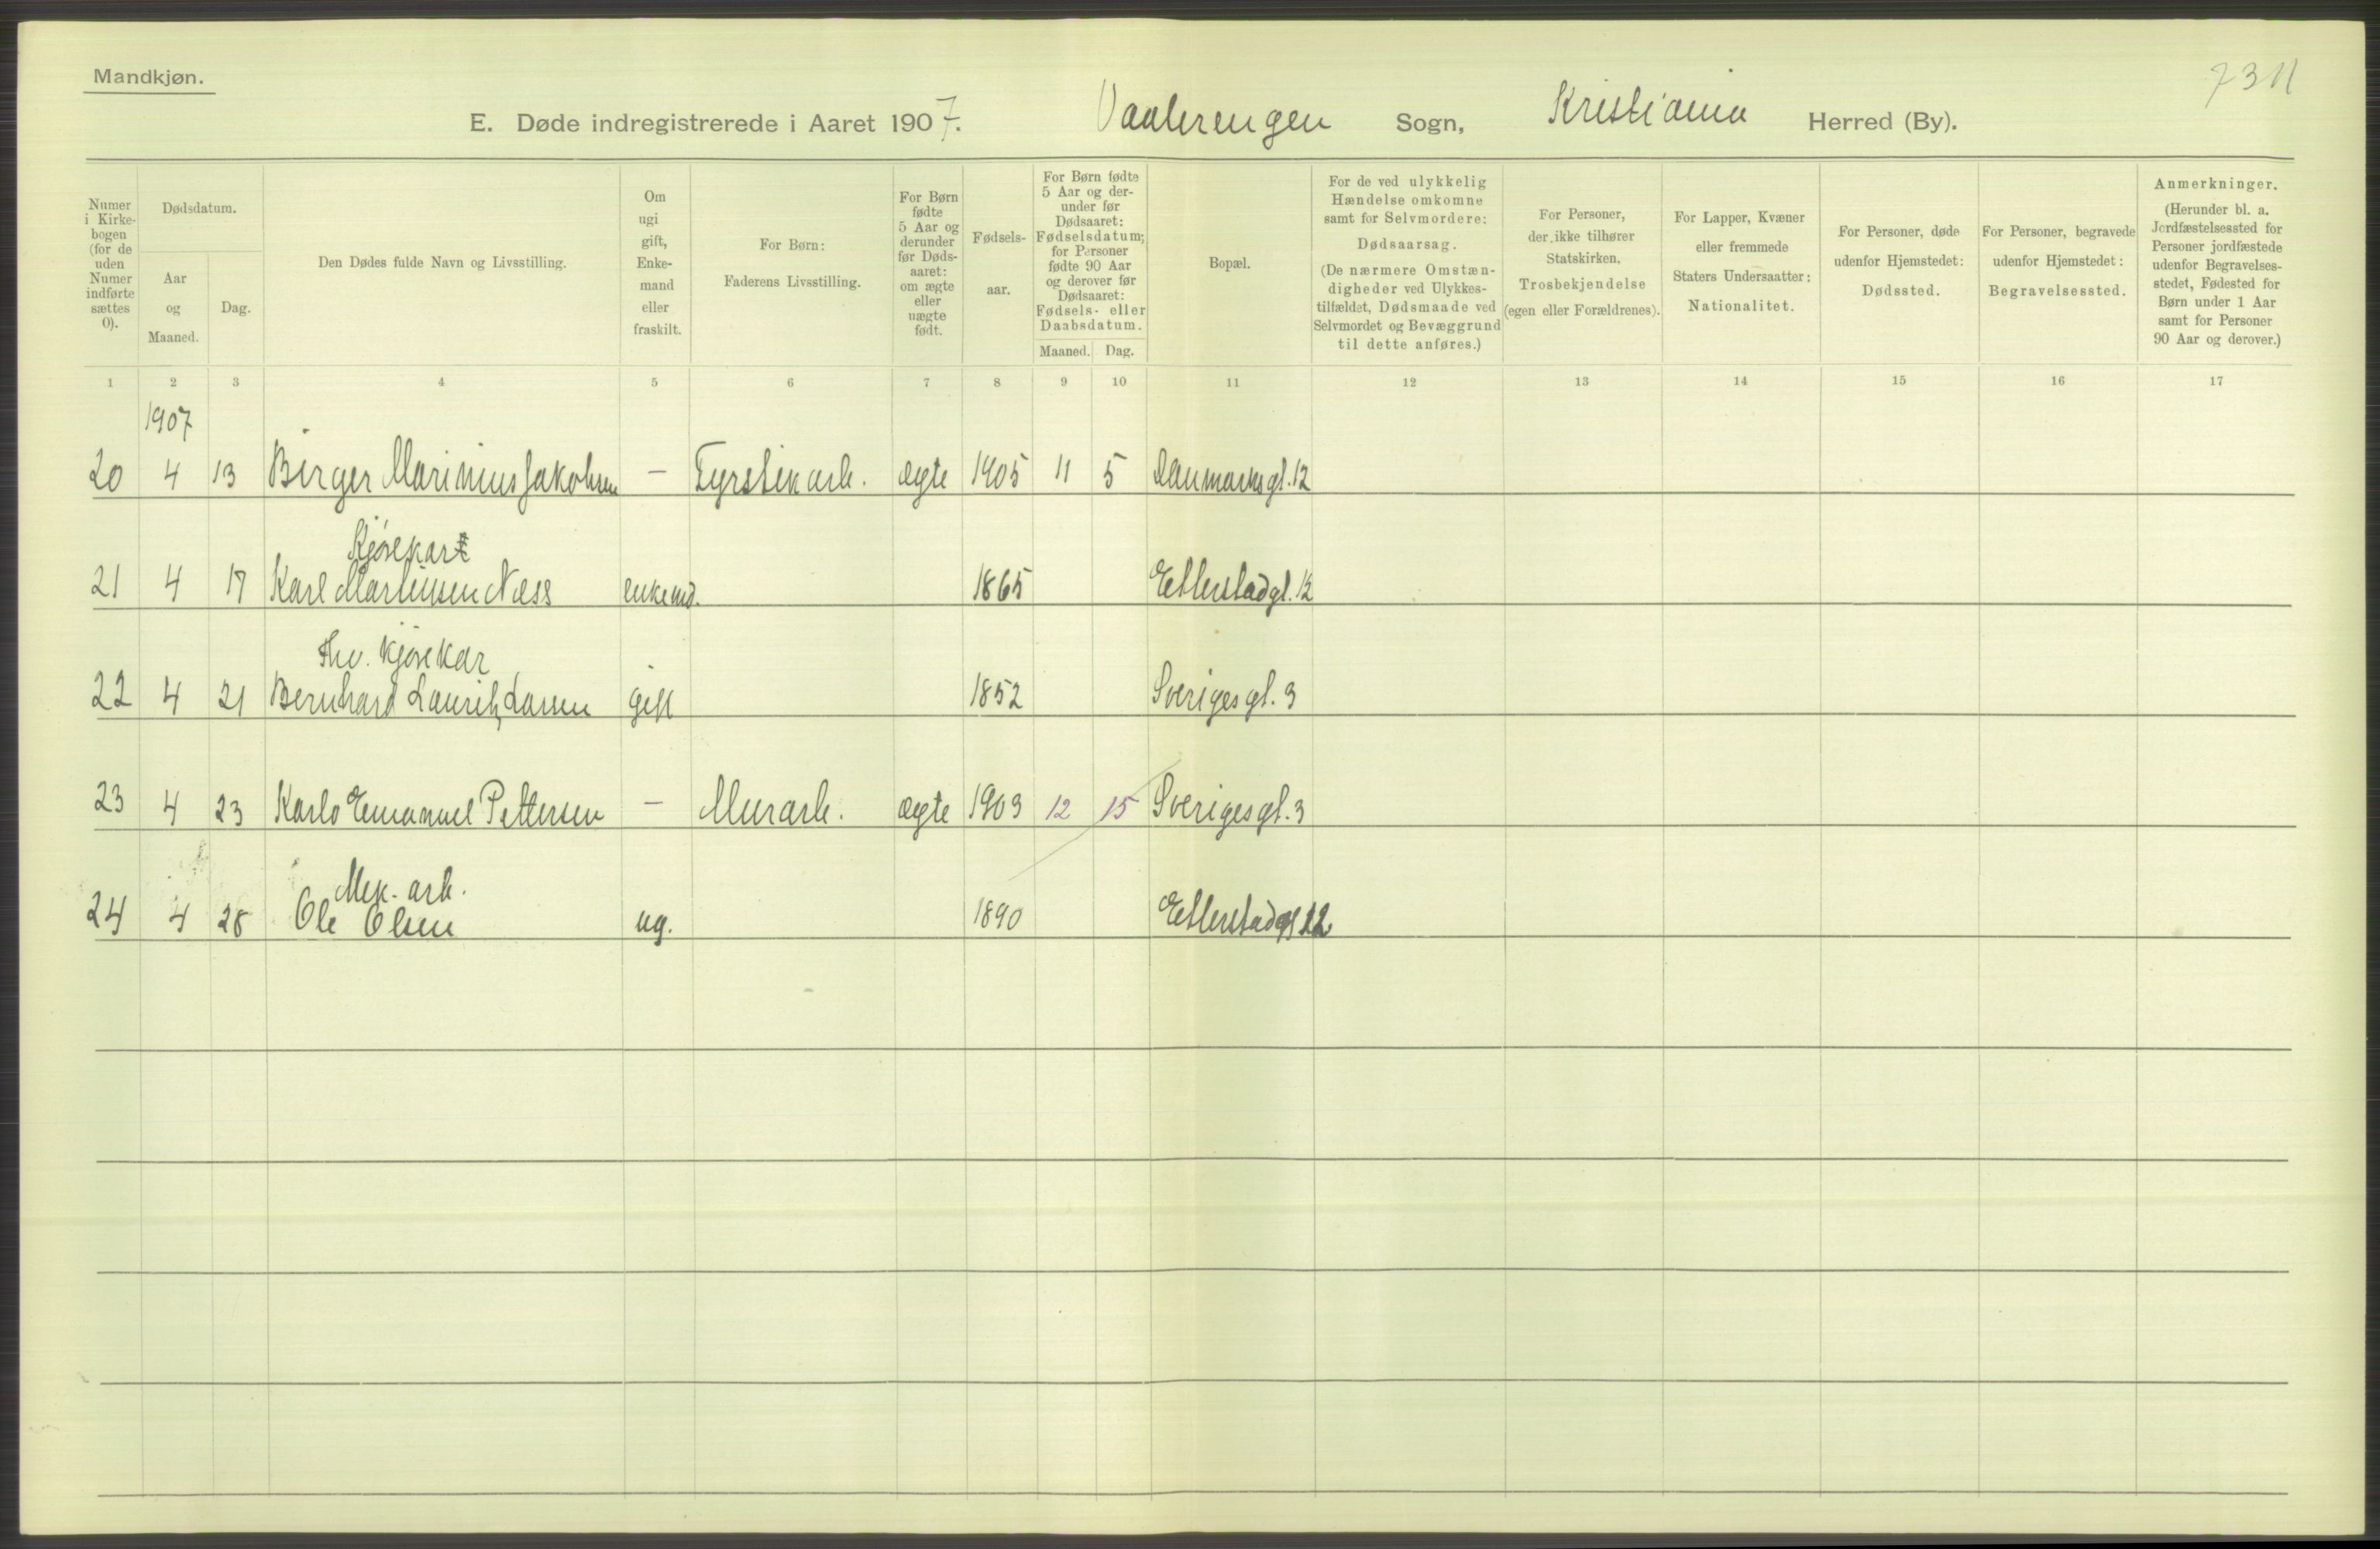 Mandkjøn.
7311
E. Døde indregistrerede i Aaret 1907. Vaalerengen Sogn, Kristiania Herred (By).
Numer i Kirkebogen (for de uden Numer indførte sættes 0).
Dødsdatum.
Aar og Maaned.
Dag.
Den Dødes fulde Navn og Livsstilling.
Om ugi gift, Enkemand eller fraskilt.
For Børn:
Faderens Livsstilling.
For Børn fødte 5 Aar og derunder før Dødsaaret: om ægte eller uægte født.
Fødselsaar.
For Børn fødte 5 Aar og derunder før Dødsaaret: Fødselsdatum; for Personer fødte 90 Aar og derover før Dødsaaret: Fødsels- eller Daabsdatum.
Maaned. Dag.
Bopæl.
For de ved ulykkelig Hændelse omkomne samt for Selvmordere:
Dødsaarsag.
(De nærmere Omstændigheder ved Ulykkestilfældet, Dødsmaade ved Selvmordet og Bevæggrund til dette anføres.)
For Personer, der ikke tilhører Statskirken, Trosbekjendelse (egen eller Forældrenes).
For Lapper, Kvæner eller fremmede Staters Undersaatter: Nationalitet.
For Personer, døde udenfor Hjemstedet: Dødssted.
For Personer, begravede udenfor Hjemstedet: Begravelsessted.
Anmerkninger.
(Herunder bl. a. Jordfæstelsessted for Personer jordfæstede udenfor Begravelsesstedet, Fødested for Børn under 1 Aar samt for Personer 90 Aar og derover.)
1 2 3 4 5 6 7 8 9 10 11 12 13 14 15 16 17
1907
20 4 13 Birger Marinius Jakobsen — Fyrstikarb. ægte 1905 11 5 Danmarksgt. 12
Kjørekar
21 4 17 Karl Martinsen Næss enkemd. 1865 Etterstadgt. 12
Fhv. Kjørekar
22 4 21 Bernhard Lauritz Larsen gift 1852 Sverigesgt. 3
23 4 23 Karlo Emanuel Pettersen — Murarb. ægte 1903 12 15 Sverigesgt. 3
Mek. arb.
24 4 28 Ole Olsen ug. 1890 Etterstadgt 22